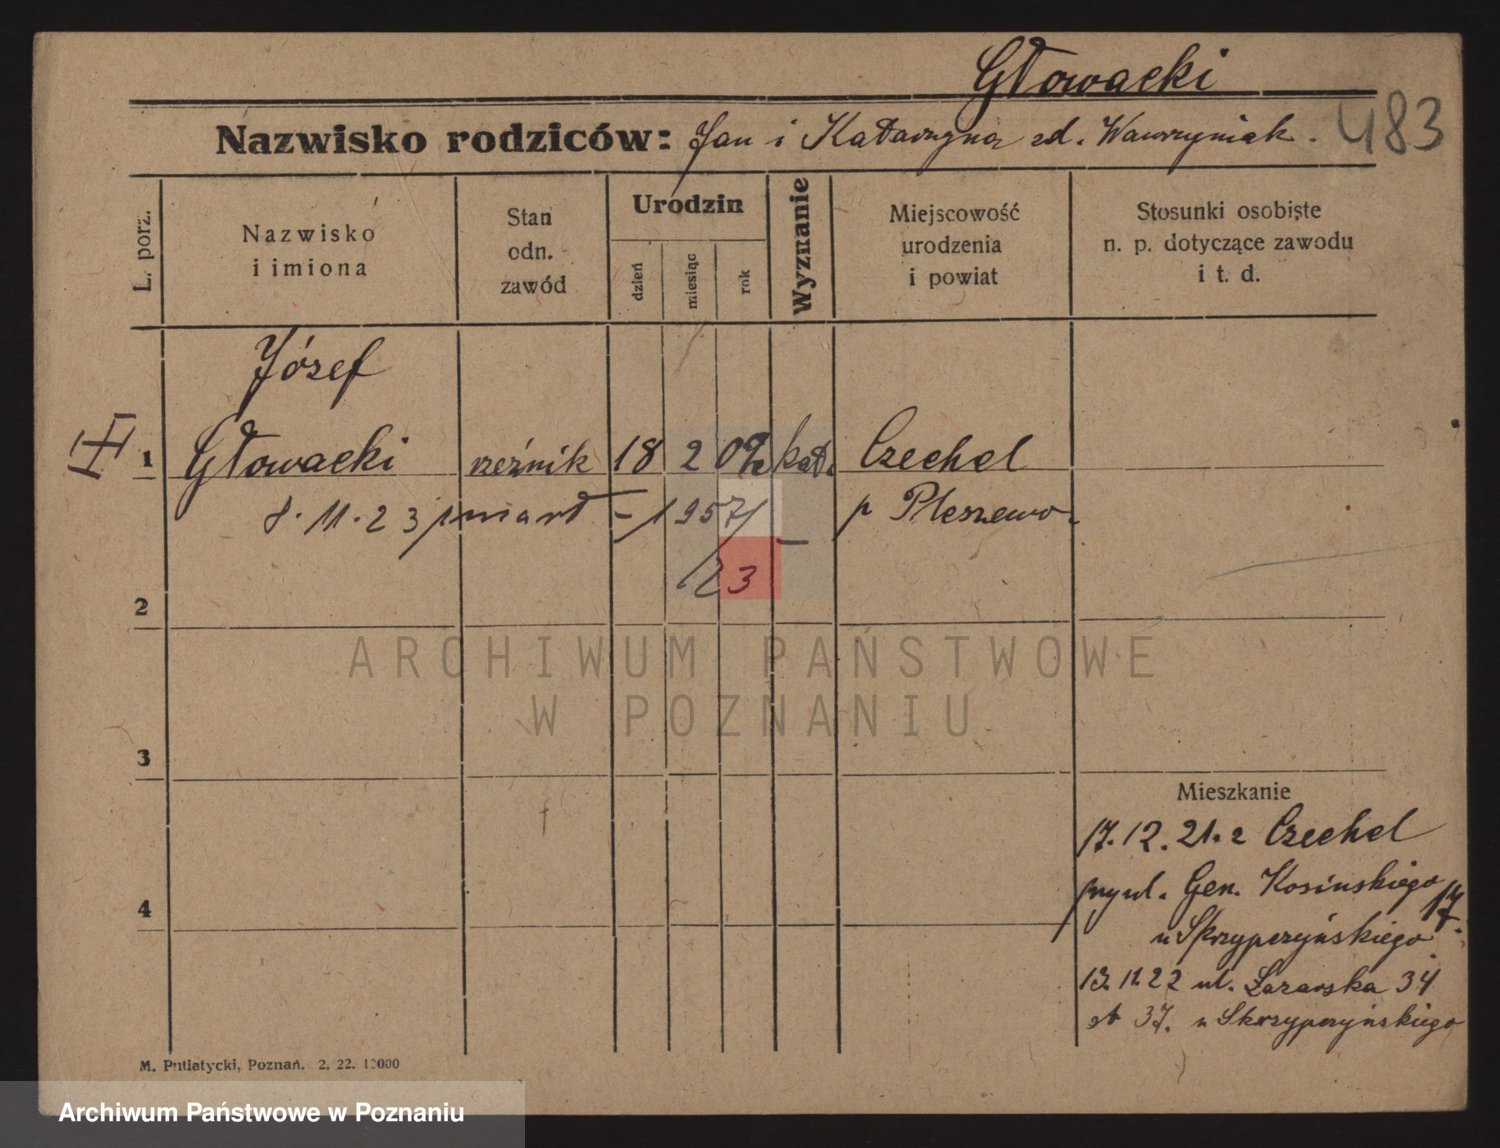 Głowacki
483
Nazwisko rodziców: Jan i Katarzyna zd. Wawrzyniak.
L. porz.
Nazwisko
i imiona
Stan
odn.
zawód
Urodzin
dzień
miesiąc
rok
Wyznanie
Miejscowość
urodzenia
i powiat
Stosunki osobiste
n. p. dotyczące zawodu
i t. d.
Józef
1 Głowacki rzeźnik 18 2 02 kat. Czechel
8. 11. 23 zmarł - 1957/ p Pleszewo
/23
2
ARCHIWUM PAŃSTWOWE
W POZNANIU
3
Mieszkanie
17. 12. 21. z Czechel
przy ul. Gen. Kosińskiego 17.
4
u Skrzypczyńskiego
13. 11. 22 ul. Łazarska 34
37. u Skrzypczyńskiego
M. Putiatycki, Poznań. 2. 22. 10000
Archiwum Państwowe w Poznaniu